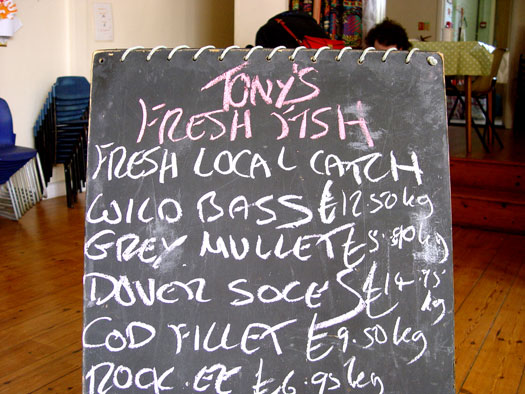 TONY'S
FRESH FISH
FRESH LOCAL CATCH
WILD BASS £12.50kg
GREY MULLET £5. kg
DOVER SOLES £14.75 kg
COD FILLET £9.50kg
ROCK. £6.95kg